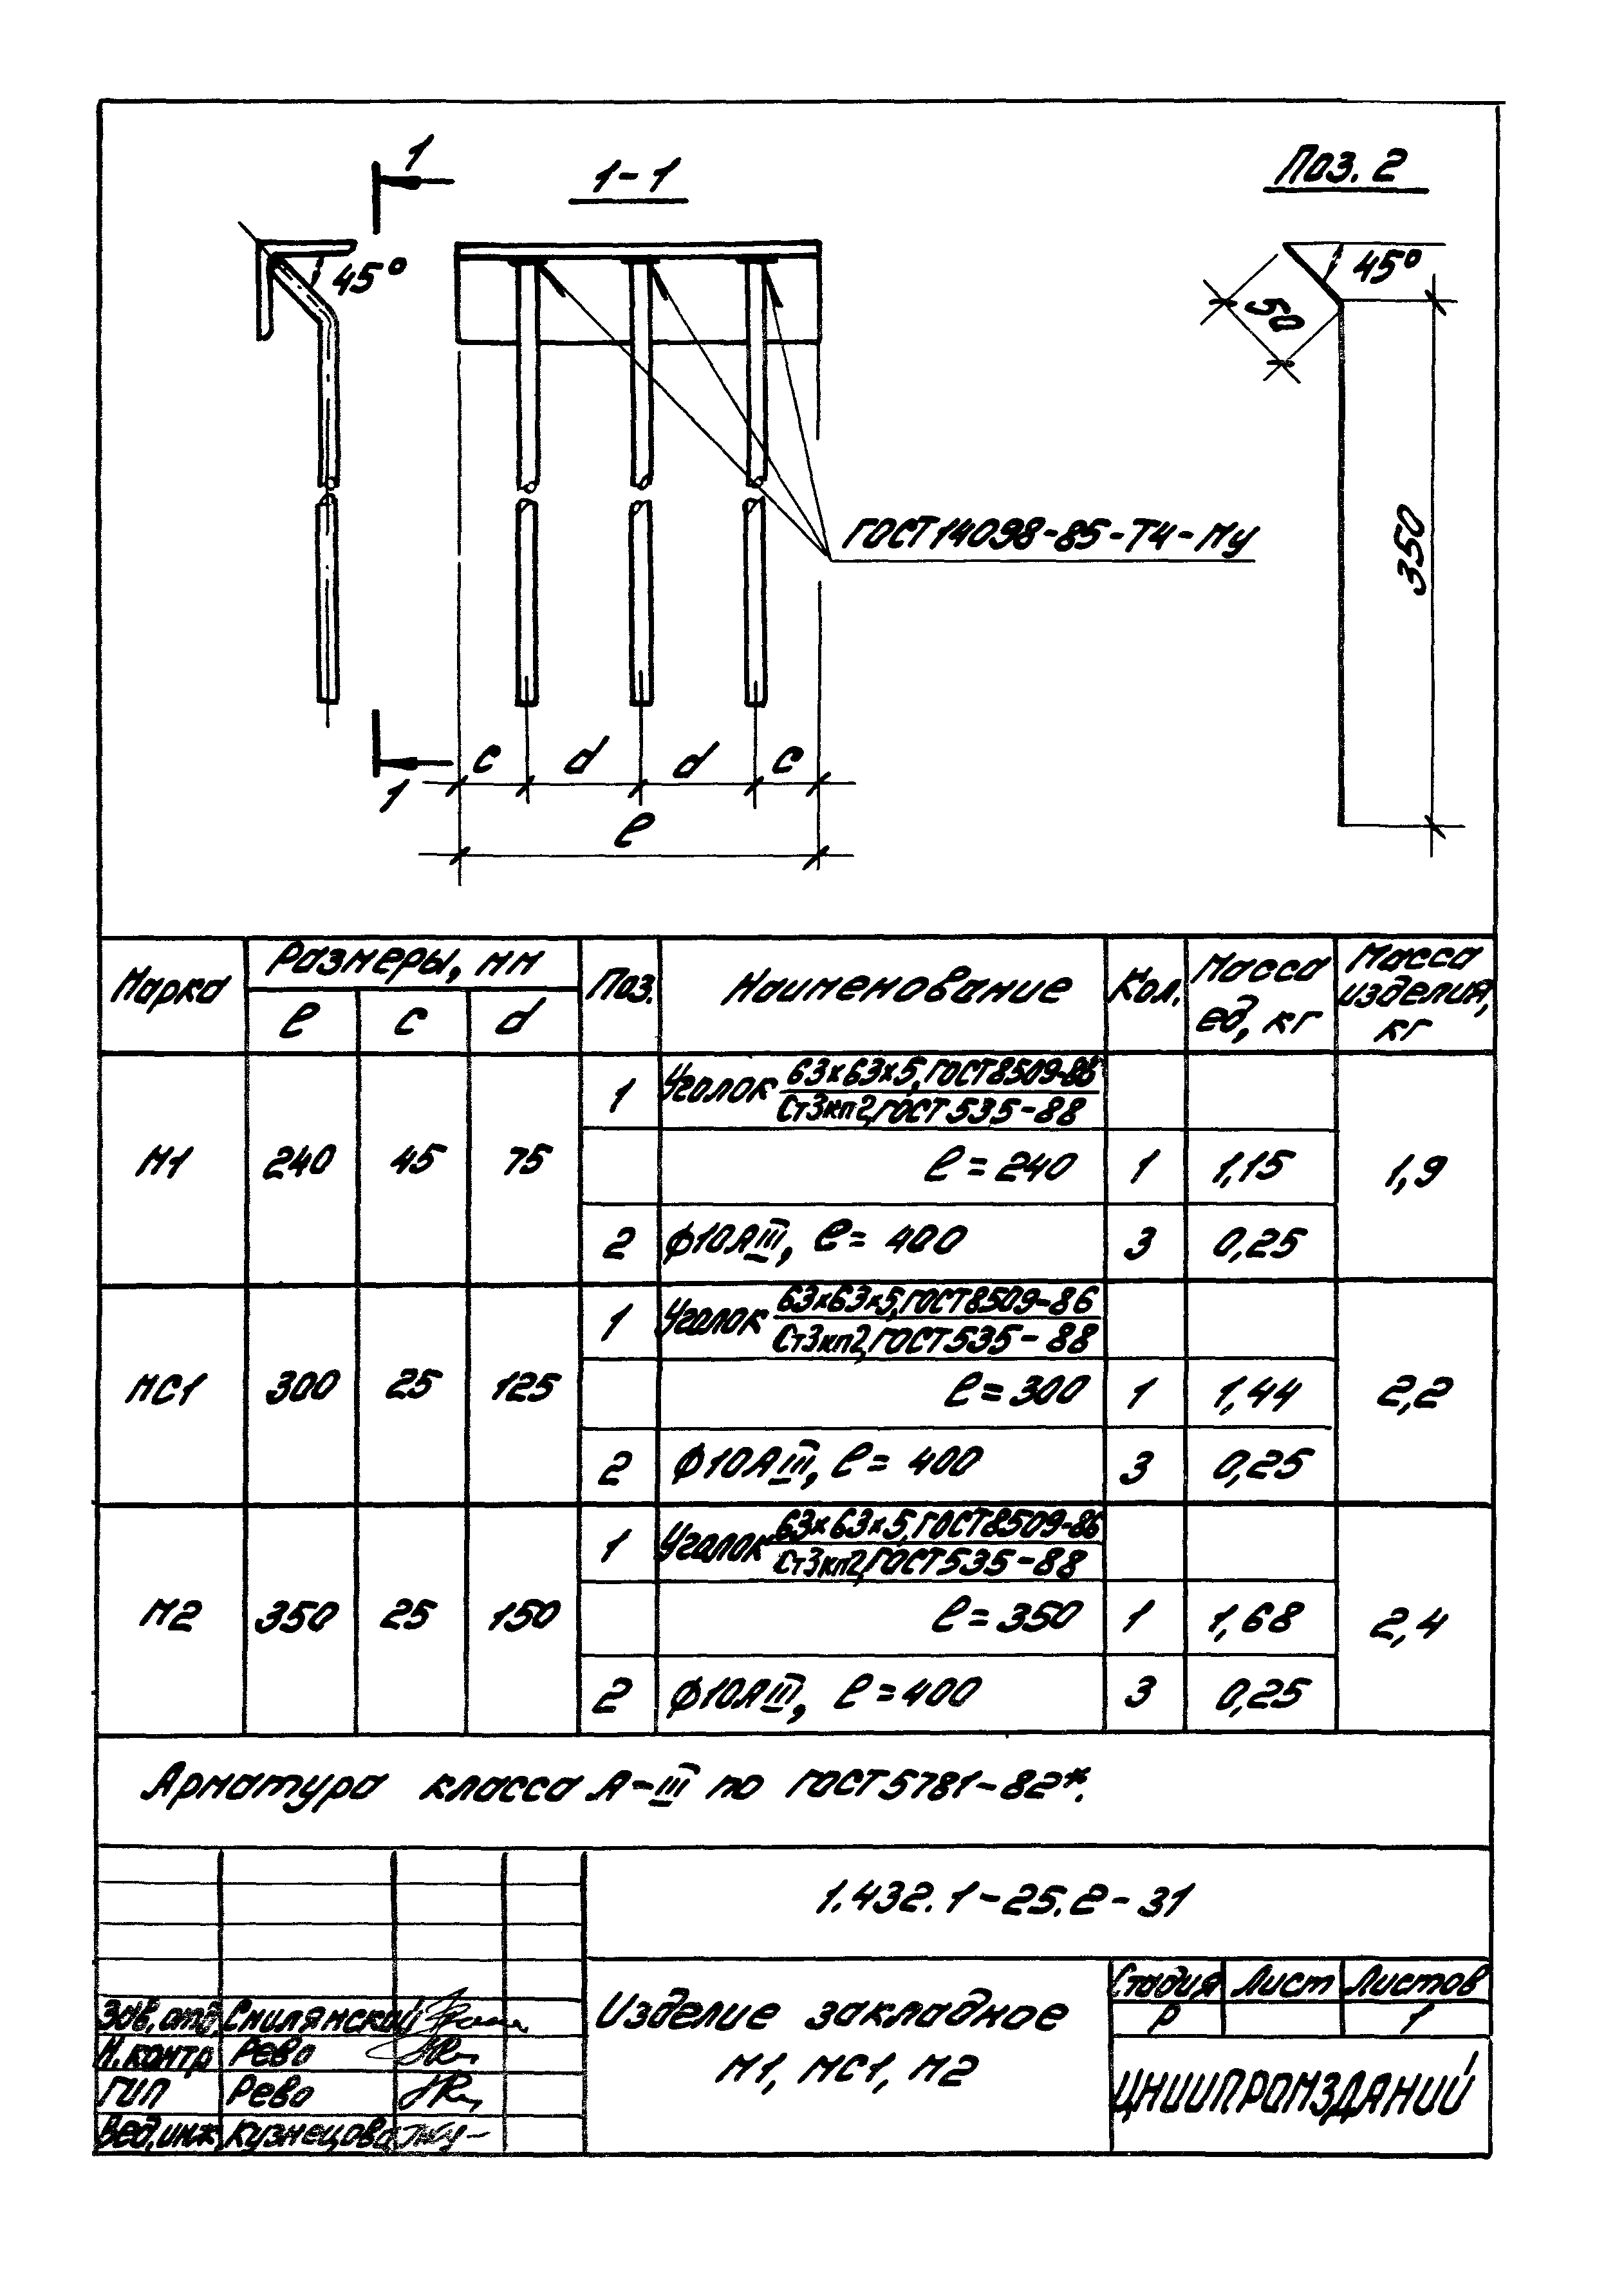 1
1-1
Поз. 2
45°
45°
50
350
ГОСТ14098-85-Т4-Му
1
c d d c
ℓ
Марка Размеры, мм Поз. Наименование Кол. Масса ед, кг Масса изделия, кг
ℓ c d
1 Уголок 63х63х5, ГОСТ8509-86
Ст3кп2, ГОСТ535-88
М1 240 45 75 ℓ=240 1 1,15 1,9
2 ϕ10АIII, ℓ= 400 3 0,25
1 Уголок 63х63х5, ГОСТ8509-86
Ст3кп2, ГОСТ535-88
МС1 300 25 125 ℓ=300 1 1,44 2,2
2 ϕ10АIII, ℓ= 400 3 0,25
1 Уголок 63х63х5, ГОСТ8509-86
Ст3кп2, ГОСТ535-88
М2 350 25 150 ℓ=350 1 1,68 2,4
2 ϕ10АIII, ℓ=400 3 0,25
Арматура класса А-III по ГОСТ5781-82*.
1.432.1-25.2-31
Зав. отд. Смилянский
Н. контр Рево
ГИП Рево
Вед. инж. Кузнецова
Изделие закладное
М1, МС1, М2
Стадия Лист Листов
Р 1
ЦНИИПРОМЗДАНИЙ